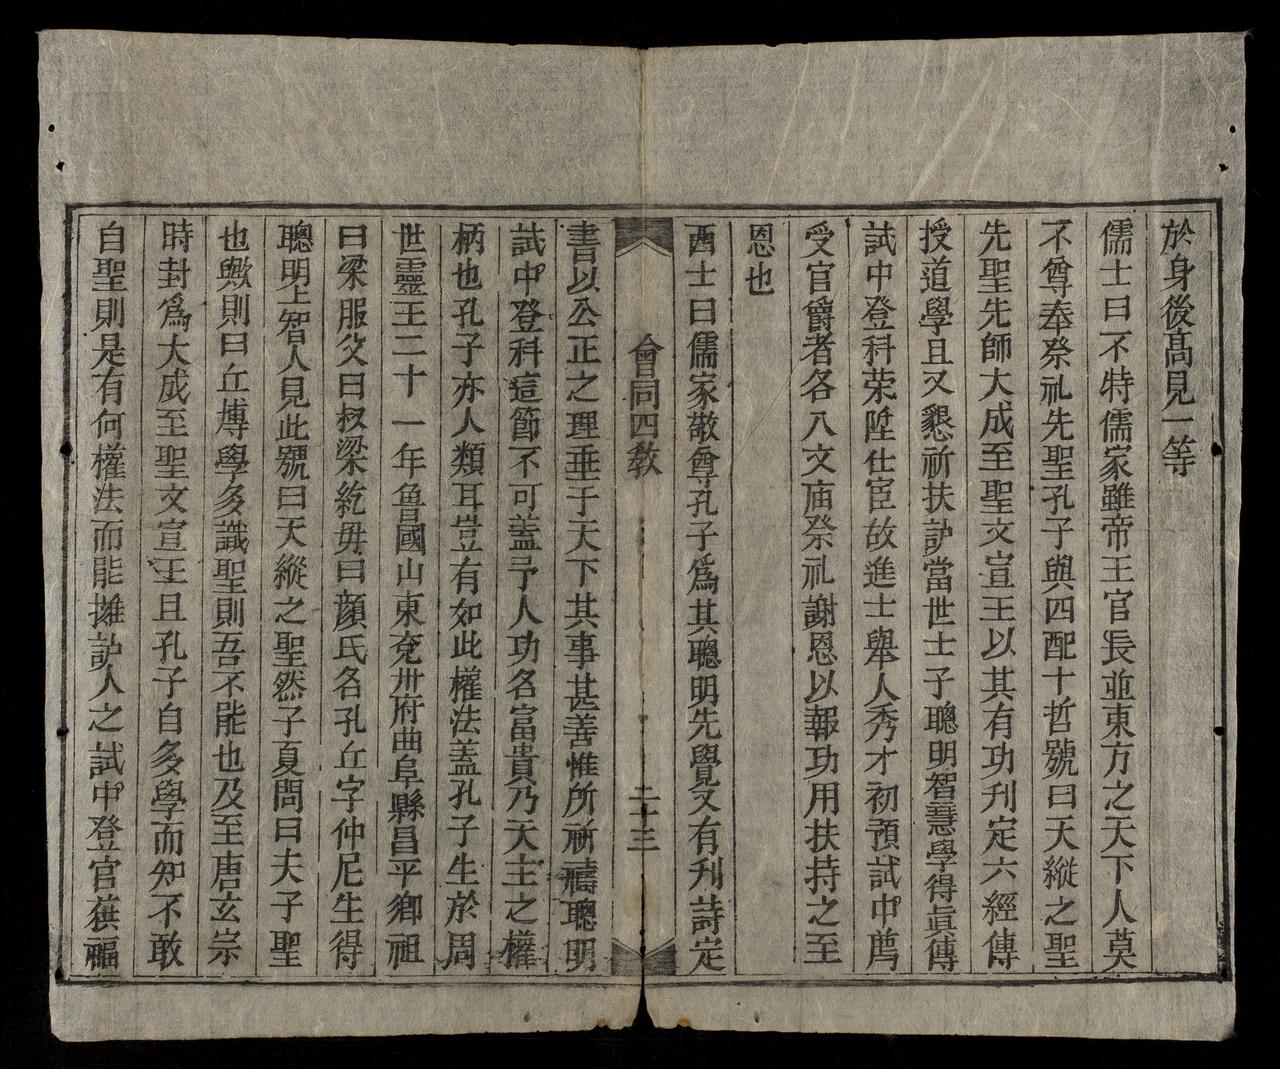 於身後高見一等
儒士曰不特儒家雖帝王官長並東方之天下人莫
不尊奉祭礼先聖孔子與四配十哲號曰天縱之聖
先聖先師大成至聖文宣王以其有功刋定六經傳
授道學且又懇祈扶訪當世士子聰明智慧學得眞傳
試中登科荣陞仕宦故進士舉人秀才初預試中薦
受官爵者各入文庙祭礼謝恩以報功用扶持之至
恩也
西士曰儒家敬尊孔子爲其聰明先覺又有刋詩定
會同四教
二十三
書以公正之理垂于天下其事甚善惟所祈禱聰明
試中登科這節不可盖予人功名富貴乃天主之權
柄也孔子亦人類耳豈有如此權法盖孔子生於周
世靈王二十一年魯國山東兖州府曲阜縣昌平鄉祖
曰梁服父曰叔梁紇毋曰顏氏名孔丘字仲尼生得
聰明上智人見此號曰天縱之聖然子夏問曰夫子聖
也歟則曰丘博學多識聖則吾不能也及至唐玄宗
時封爲大成至聖文宣王且孔子自多學而知不敢
自聖則是有何權法而能擁訪人之試中登官蔭福